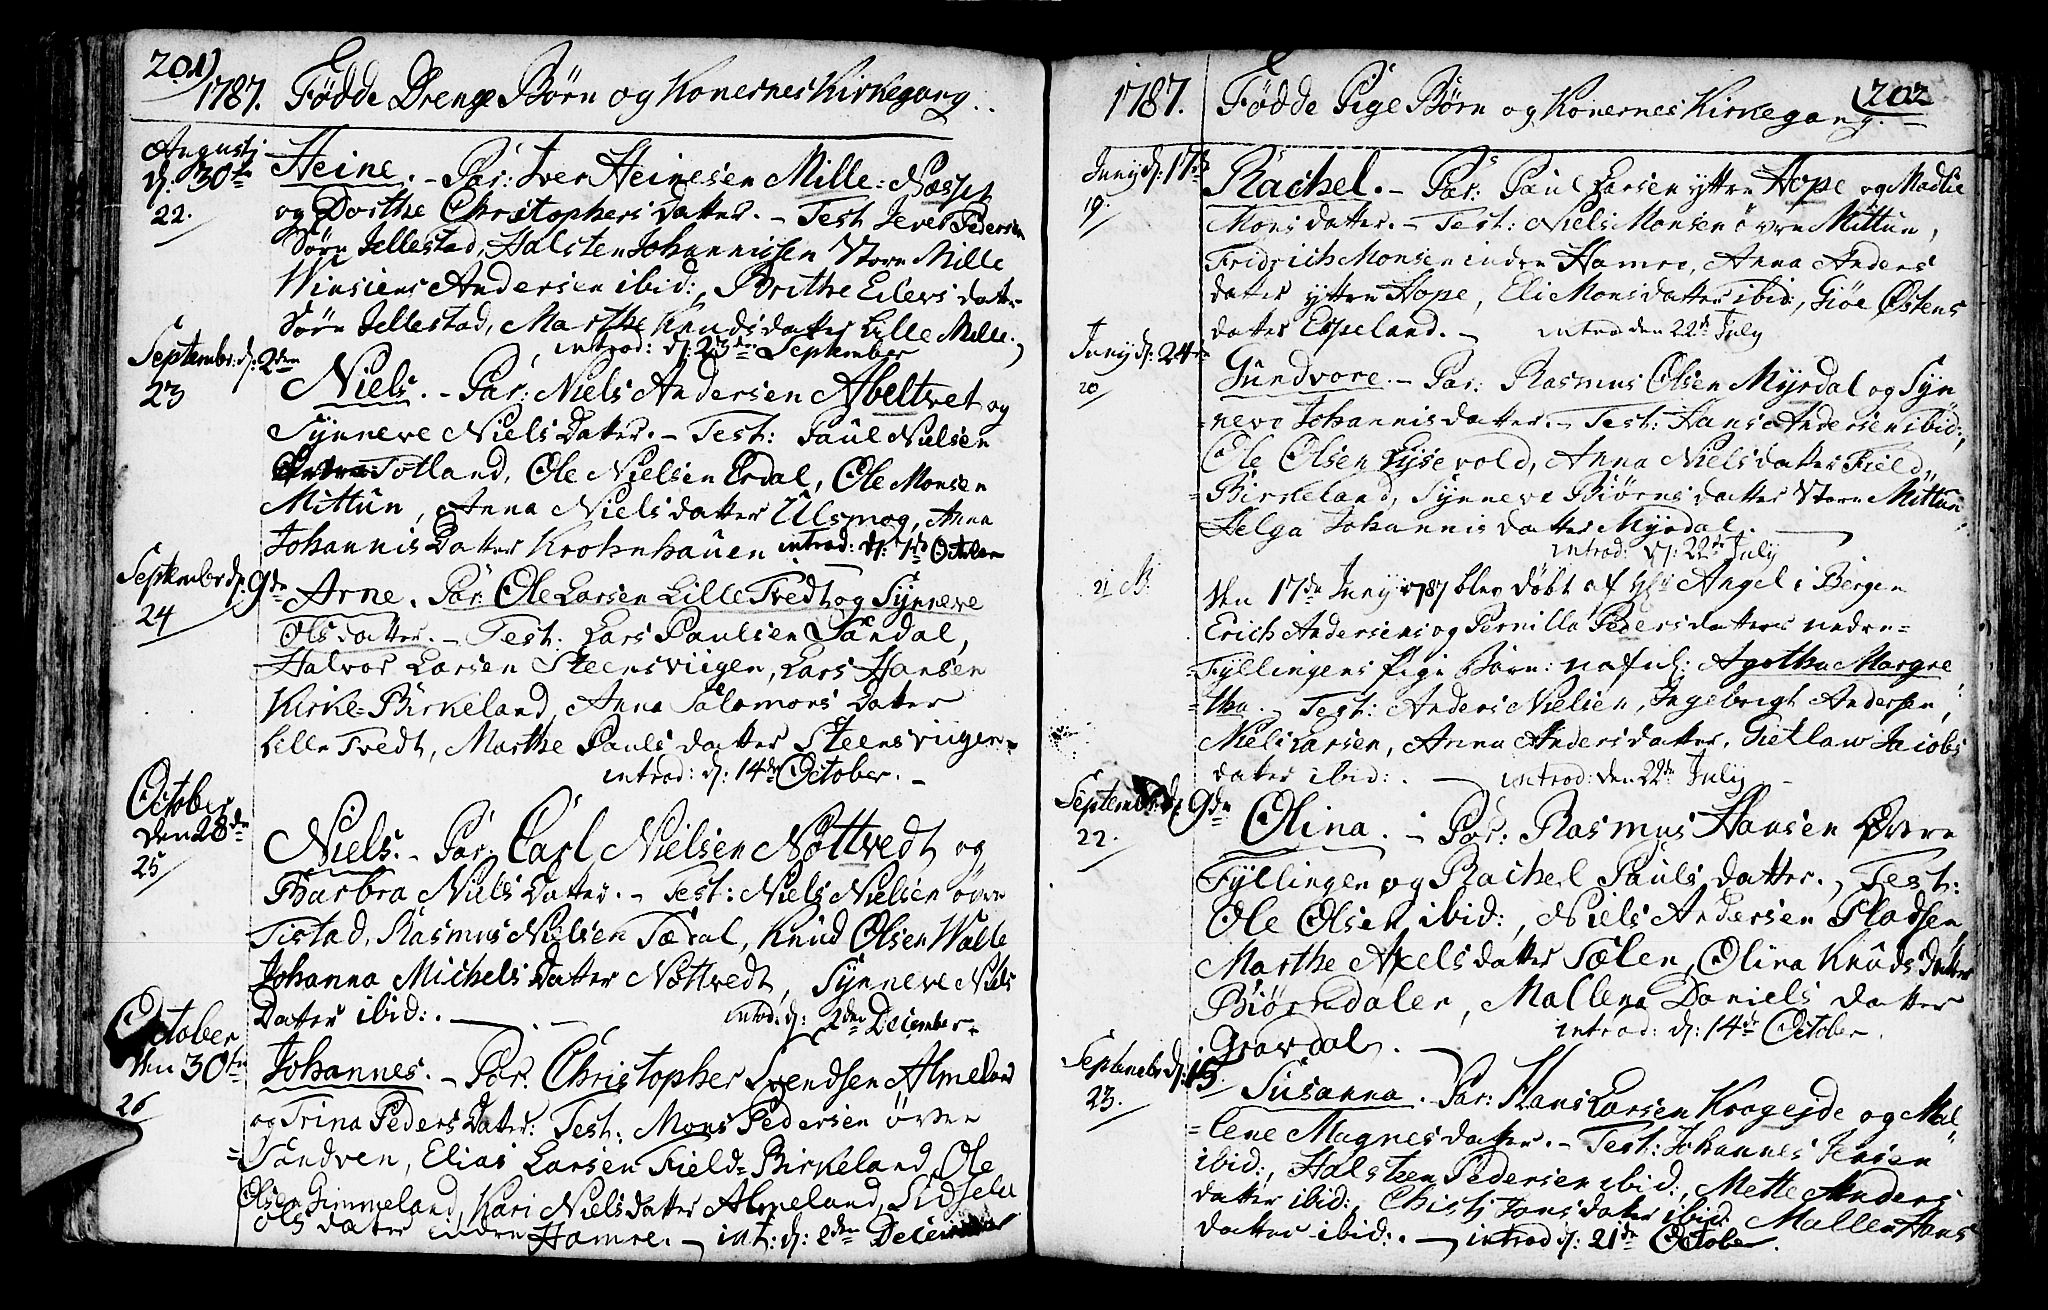 201)
1787. Fødde Drenge Børn og Konernes Kirkegang.
Augustj
d: 30te
22.
Heine. - Par: Iver Heinesen Mille: Næsset
og Dorthe Christophers Datter. - Test Iever Pedersen
Søre Jellestad, Halsten Johannissen Store Mille
Winsiens Andersen ibid:, Brithe Eilers datter
Søre Jellestad, Marthe Knudsdatter Lille Mille.
introd: d: 23de September
Septembr: d: 2den
23
Niels. - Par: Niels Andersen Abeltvet og
Synneve Niels Datter. - Test: Paul Nielsen
Totland, Ole Nielsen Erdal, Ole Monsen
Mittun, Anna Niels datter Ulsmog, Anna
Johannis Datter Krohnhauen introd: d: 7de October
Septembr d: 9de
24
Arne. Par: Ole Larsen Lille Tvedt og Synneve
Olsdatter. - Test: Lars Paulsen Sandal,
Halvor Larsen Steensviigen, Lars Hansen
Kirke-Birkeland, Anna Salamons Datter
Lille Tvedt, Marthe Pauls datter Steensviigen.
introd: d: 14de October. -
October
den 28de
25
Niels. - Par: Carl Nielsen Nøttvedt og
Barbra Niels Datter. - Test: Niels Nielsen øvre
Titstad, Rasmus Nielsen Tædal, Knud Olsen Walle
Johanna Michels Datter Nøttvedt, Synneve Niels
Datter ibid:. -
introd: d: 2den December.
October
den 30te
26
Johannes. - Par: Christopher Svendsen Almeland
og Trina Peders Datter: Test: Mons Pedersen øvre
Sandven, Elias Larsen Field-Birkeland, Ole
Olsen Gimmeland, Kari Nielsdatter Almeland, Sidsele
Ols dater indre Hamre. - int: d: 2den December
1787. Fødde Pige Børn og Konernes Kirkegang.
202
Juny d: 17de
19.
Rachel. - Par: Paul Larsen yttre Hope og Madlie
Mons datter. - Test: Niels Monsen øvre Mittun,
Fridrich Monsen indre Hamre, Anna Anders
dater yttre Hope, Eli Monsdatter ibid:, Giøe Østens
datter Espeland. - introd den 22de July
Juny d: 24de
20
Gundvore. - Par: Rasmus Olsen Myrdal og Syn
neve Johannisdatter. - Test: Hans Andersen ibid:,
Ole Olsen Lysevold, Anna Nielsdatter Field
Birkeland, Synneve Biørnsdatter Store Mittun
Helga Johannis datter Myrdal. -
introd: d: 22de July
21
Den 17de Juny 1787 blev døbt af Hr Angel i Bergen
Erich Andersens og Pernilla Pedersdatters nedre
Fyllingens Pige Børn: nafnl: Agatha Margre
tha. - Test: Anders Nielsen, Ingebrigt Andersen,
Niels Larsen, Anna Andersdatter, Gietlaw Jacobs
dater ibid:. - introd: den 22de July -
Septembr: d: 9de
22.
Olina. - Par: Rasmus Hansen Øvre
Fyllingen og Rachel Pauls datter. - Test:
Ole Olsen ibid:, Niels Andersen Pladsen,
Marthe Axelsdatter Sælen, Olina Knuds Datter
Biørndalen, Mallena Daniels datter
Gravdal. - introd: d: 14de October.
Septembr d: 15
23.
Susanna. - Par: Hans Larsen Kragejde og Mal
lene Magnesdatter. - Test: Johannes Jensen
ibid:, Halsteen Pedersen ibid:, Mette Anders
datter ibid:, Christi Jansdater ibid: Mallen Hans
datter ibid:. - introd d: 21de October.